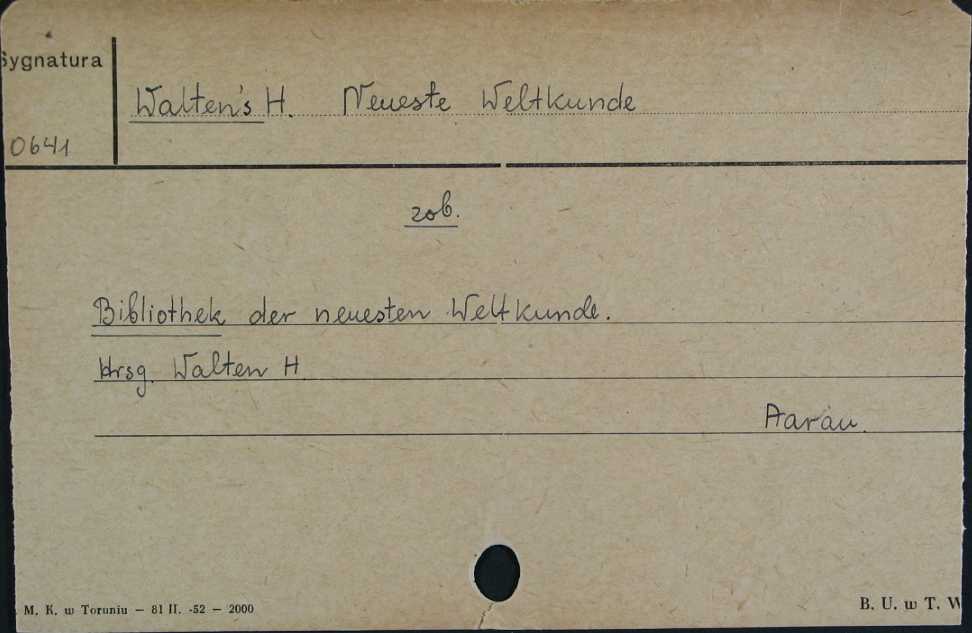 Sygnatura
Walten's H. Neueste Weltkunde
0641
zob.
Bibliothek der neuesten Weltkunde.
Hrsg. Walten H.
Aarau.
M. K. w Toruniu — 81 II. -52 — 2000
B. U. w T. W